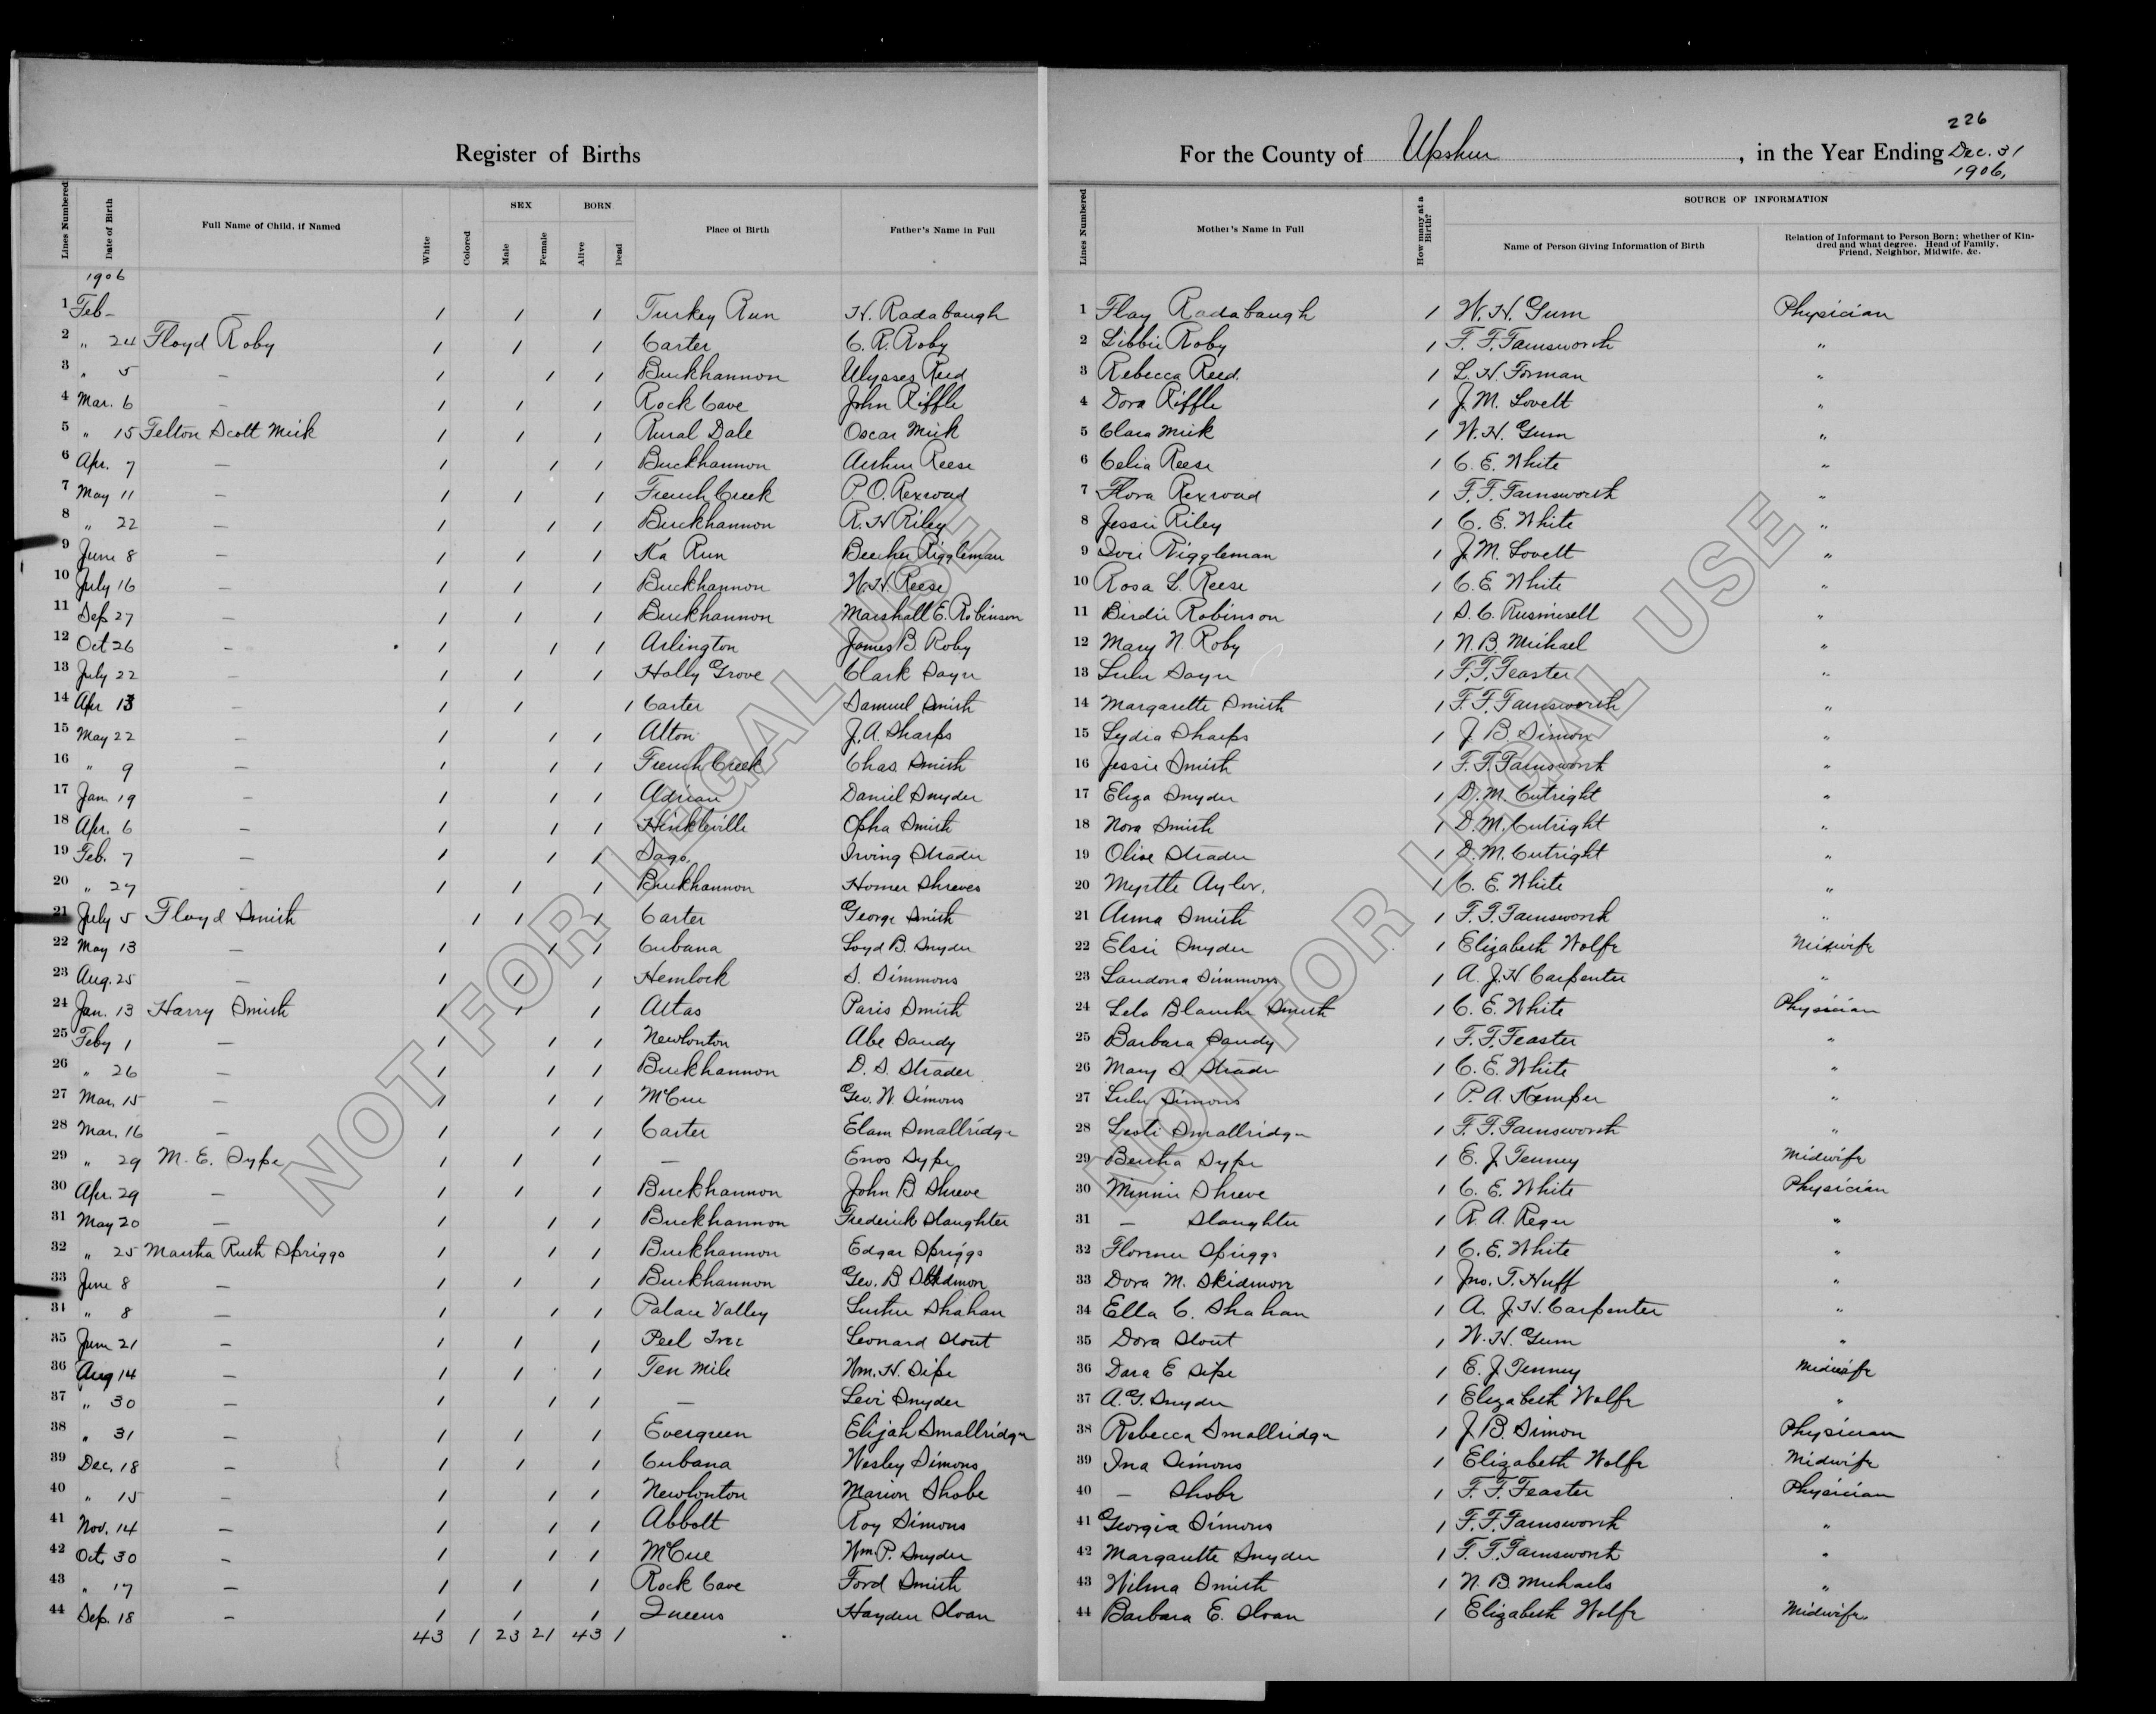 226
Register of Births
For the County of Upshur, in the Year Ending Dec. 31 1906,
Lines Numbered Date of Birth Full Name of Child, if Named White Colored SEX Male Female BORN Alive Dead Place of Birth Father's Name in Full Lines Numbered Mother's Name in Full How many at a Birth? SOURCE OF INFORMATION Name of Person Giving Information of Birth Relation of Informant to Person Born; whether of Kindred and what degree. Head of Family, Friend, Neighbor, Midwife, &c.
1906
1 Feb — — 1 1 1 Turkey Run H. Radabaugh 1 Flay Radabaugh 1 W. H. Gum Physician
2 " 24 Floyd Roby 1 1 1 Carter C. R. Roby 2 Libbie Roby 1 F. F. Farnsworth "
3 " 5 — 1 1 1 Buckhannon Ulysses Reed 3 Rebecca Reed. 1 L. H. Forman "
4 Mar. 6 — 1 1 1 Rock Cave John Riffle 4 Dora Riffle 1 J. M. Lovett "
5 " 15 Felton Scott Mick 1 1 1 Rural Dale Oscar Mick 5 Clara Mick 1 W. H. Gum "
6 Apr. 7 — 1 1 1 Buckhannon Arthur Reese 6 Celia Reese 1 C. E. White "
7 May 11 — 1 1 1 French Creek P. O. Rexroad 7 Flora Rexroad 1 F. F. Farnsworth "
8 " 22 — 1 1 1 Buckhannon R. H Riley 8 Jessie Riley 1 C. E. White "
9 June 8 — 1 1 1 Ka Run Beecher Riggleman 9 Riggleman 1 J. M. Lovett "
10 July 16 — 1 1 1 Buckhannon W. H. Reese 10 Rosa L. Reese 1 C. E White "
11 Sep 27 — 1 1 1 Buckhannon Marshall E. Robinson 11 Birdie Robinson 1 S. C. Rusmisell "
12 Oct 26 — 1 1 1 Arlington James B. Roby 12 Mary N. Roby 1 N. B. Michael "
13 July 22 — 1 1 1 Holly Grove Clark Sayre 13 Lulu Sayre 1 F. F. Feaster "
14 Apr 13 — 1 1 1 Carter Samuel Smith 14 Margarette Smith 1 F. F. Farnsworth "
15 May 22 — 1 1 1 Alton J. A. Sharps 15 Lydia Sharps 1 J. B. Simon "
16 " 9 — 1 1 1 French Creek Chas. Smith 16 Jessie Smith 1 F. F. Farnsworth "
17 Jan. 19 — 1 1 1 Adrian Daniel Snyder 17 Eliza Snyder 1 D. M. Cutright "
18 Apr. 6 — 1 1 1 Hinkleville Opha Smith 18 Nora Smith 1 D. M. Cutright "
19 Feb. 7 — 1 1 1 Sago, Irving Strader 19 Olive Strader 1 D. M. Cutright "
20 " 27 — 1 1 1 Buckhannon Homer Shreves 20 Myrtle Aylor, 1 C. E. White "
21 July 5 Floyd Smith 1 1 1 Carter George Smith 21 Anna Smith 1 F. F. Farnsworth "
22 May 13 — 1 1 1 Cubana Loyd B. Snyder 22 Elsie Snyder 1 Elizabeth Wolfe Midwife
23 Aug. 25 — 1 1 1 Hemlock S. Simmons 23 Laudona Simmons 1 A. J. H Carpenter "
24 Jan. 13 Harry Smith 1 1 1 Altas Paris Smith 24 Lela Blanche Smith 1 C. E. White Physician
25 Feby 1 — 1 1 1 Newlonton Abe Sandy 25 Barbara Sandy 1 F. F. Feaster "
26 " 26 — 1 1 1 Buckhannon D. S. Strader 26 Mary S Strader 1 C. E. White "
27 Mar. 15 — 1 1 1 McCue Geo. W. Simons 27 Lulu Simons 1 P. A. Kemper "
28 Mar. 16 — 1 1 1 Carter Elam Smallridge 28 Smallridge 1 F. F. Farnsworth "
29 " 29 M. E. Sype 1 1 1 — Enos Sype 29 Bertha Sype 1 E. J. Tenney Midwife
30 Apr. 29 — 1 1 1 Buckhannon John B Shreve 30 Minnie Shreve 1 C. E. White Physician
31 May 20 — 1 1 1 Buckhannon Frederick Slaughter 31 — Slaughter 1 R. A. Reger "
32 " 25 Martha Ruth Spriggs 1 1 1 Buckhannon Edgar Spriggs 32 Florence Spriggs 1 C. E. White "
33 June 8 — 1 1 1 Buckhannon Geo. B 33 Dora M. Skidmore 1 Jno. T. Huff "
34 " 8 — 1 1 1 Palace Valley Luther Shahan 34 Ella C. Shahan 1 A. J. H. Carpenter "
35 June 21 — 1 1 1 Peel Tree Leonard Stout 35 Dora Stout 1 W. H. Gum "
36 Aug 14 — 1 1 1 Ten Mile Wm. H. Sipe 36 Dara E Sipe 1 E. J Tenney Midwife
37 " 30 — 1 1 1 — Levi Snyder 37 A. G. Snyder 1 Elizabeth Wolfe "
38 " 31 — 1 1 1 Evergreen Elijah Smallridge 38 Rebecca Smallridge 1 J. B. Simon Physician
39 Dec. 18 — 1 1 1 Cubana Wesley Simons 39 Ina Simons 1 Elizabeth Wolfe Midwife
40 " 15 — 1 1 1 Newlonton Marion Shobe 40 — Shobe 1 F. F. Feaster Physician
41 Nov. 14 — 1 1 1 Abbott Roy Simons 41 Georgia Simons 1 F. F. Farnsworth "
42 Oct. 30 — 1 1 1 McCue Wm. P. Snyder 42 Margarette Snyder 1 F. F. Farnsworth "
43 " 17 — 1 1 1 Rock Cave Ford Smith 43 Wilma Smith 1 N. B. Michaels "
44 Sep. 18 — 1 1 1 Queens Hayden Sloan 44 Barbara E. Sloan 1 Elizabeth Wolfe Midwife
43 1 23 21 43 1
NOT FOR LEGAL USE
NOT FOR LEGAL USE